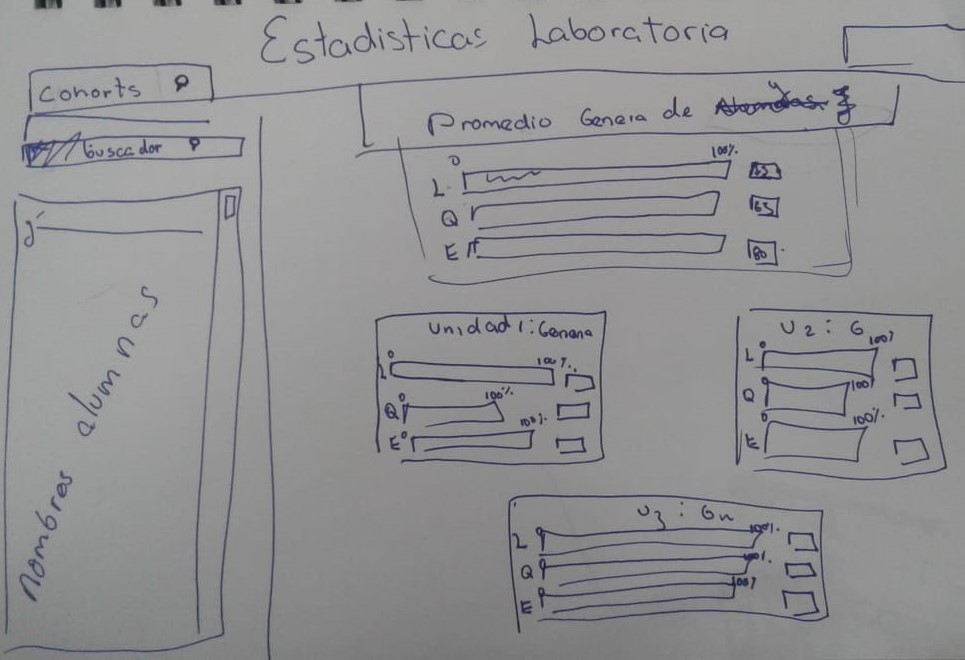 Estadisticas Laboratoria
Cohorts
buscador
Nombres alumnas
Promedio Genera de
0 100%
L
Q 65
E 80
Unidad 1: Genera
0 100%
L
0 100%
Q
0 100%
E
U2: G
0 100%
L
0 100
Q
0 100%
E
U3: Gn
L 100%
Q 100%
E 100%